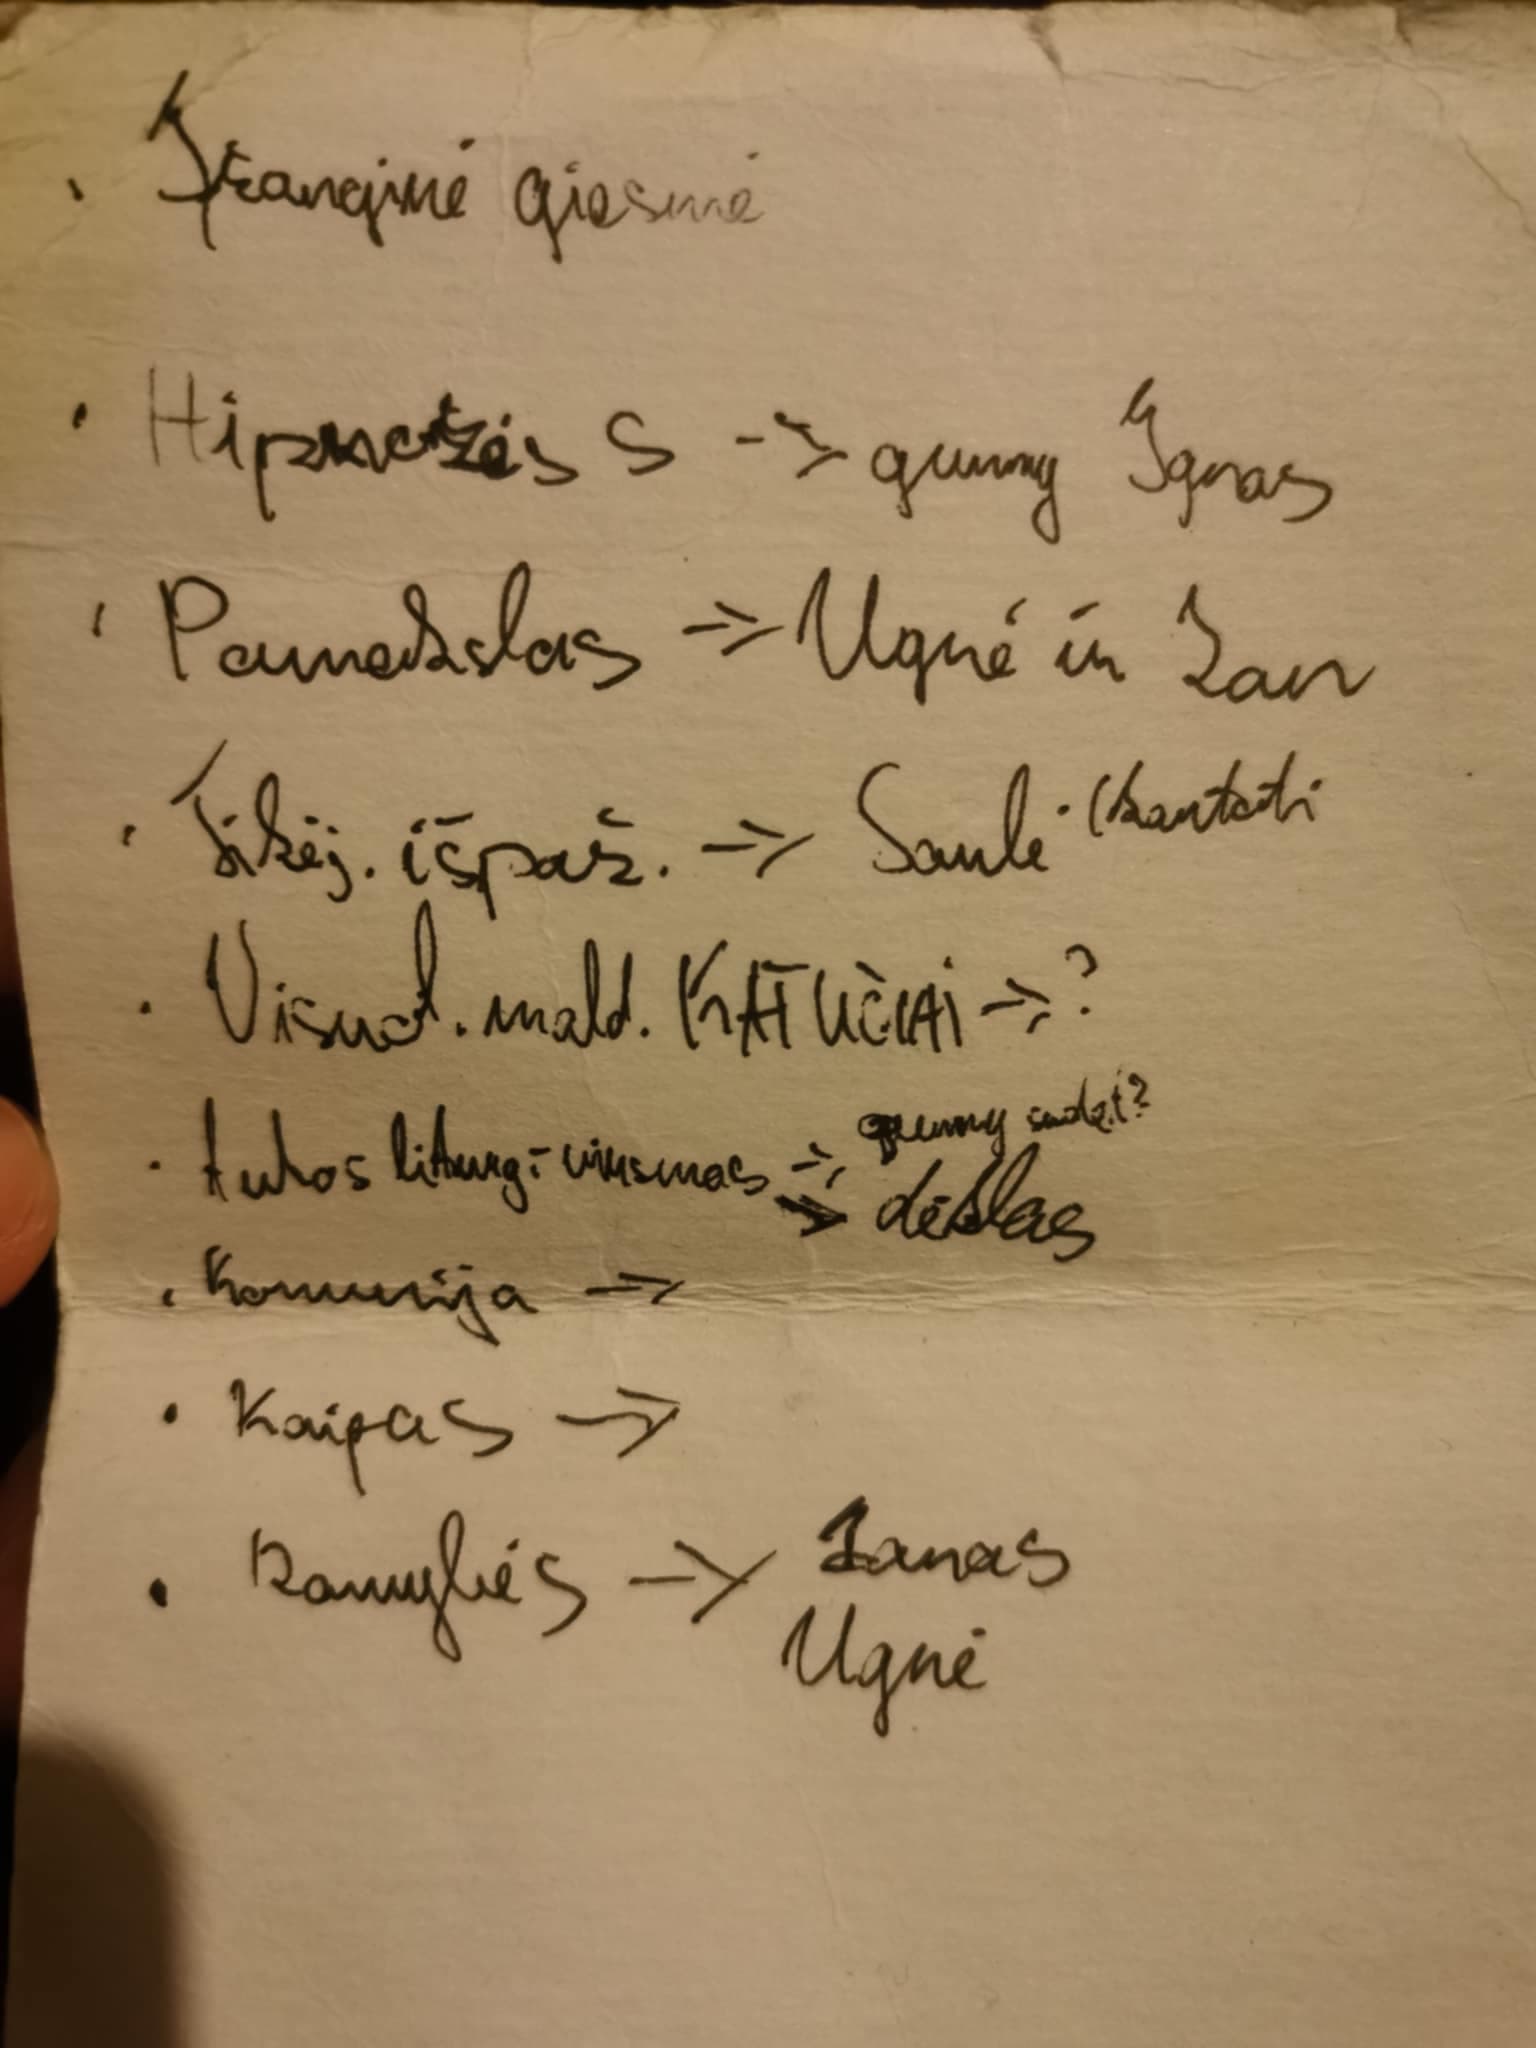 Įžanginė giesmė
Hipnozės S → gurmy Ignas
Pamokslas → Ugnė ir Zan
Tikėj. išpaž. → Saulė (kartoti
Visuot. mald. KATUČIAI → ?
Aukos liturgi- vyksmas → gurmy
→ dėklas
Komunija →
Kaipas →
Ramybės → Zanas
Ugnė